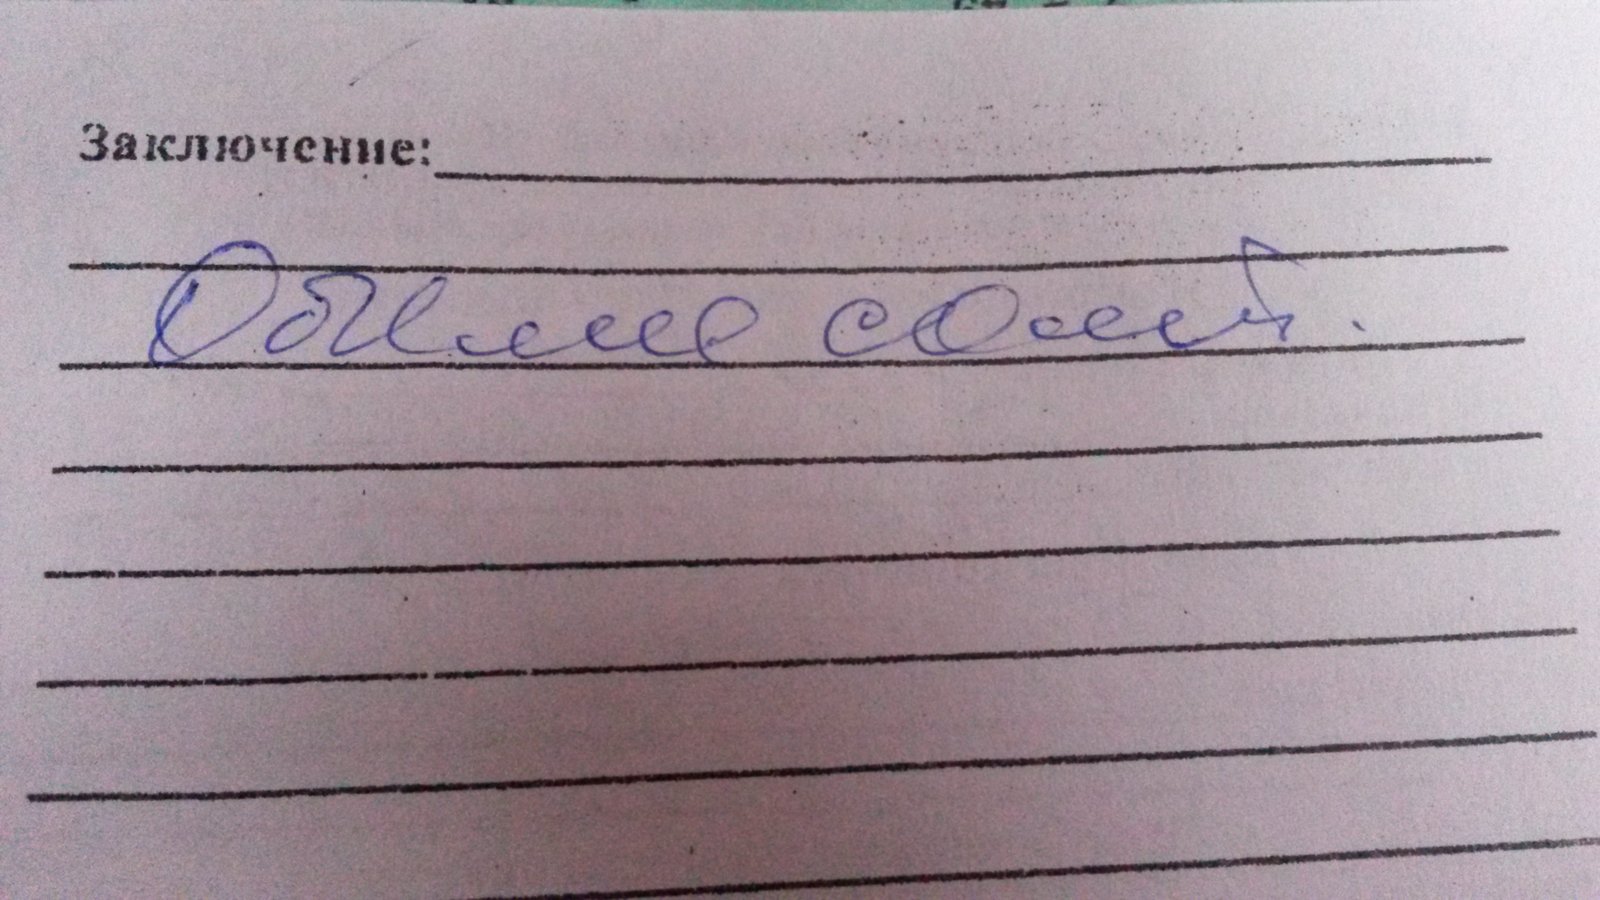 Заключение:
Обилие солей.